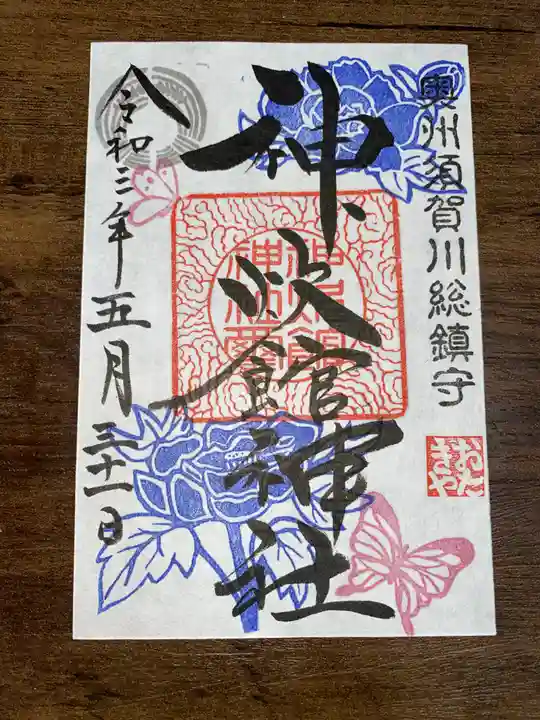 奥州須賀川総鎮守
おたきや
神炊館神社
神炊館神社璽
令和三年五月三十一日